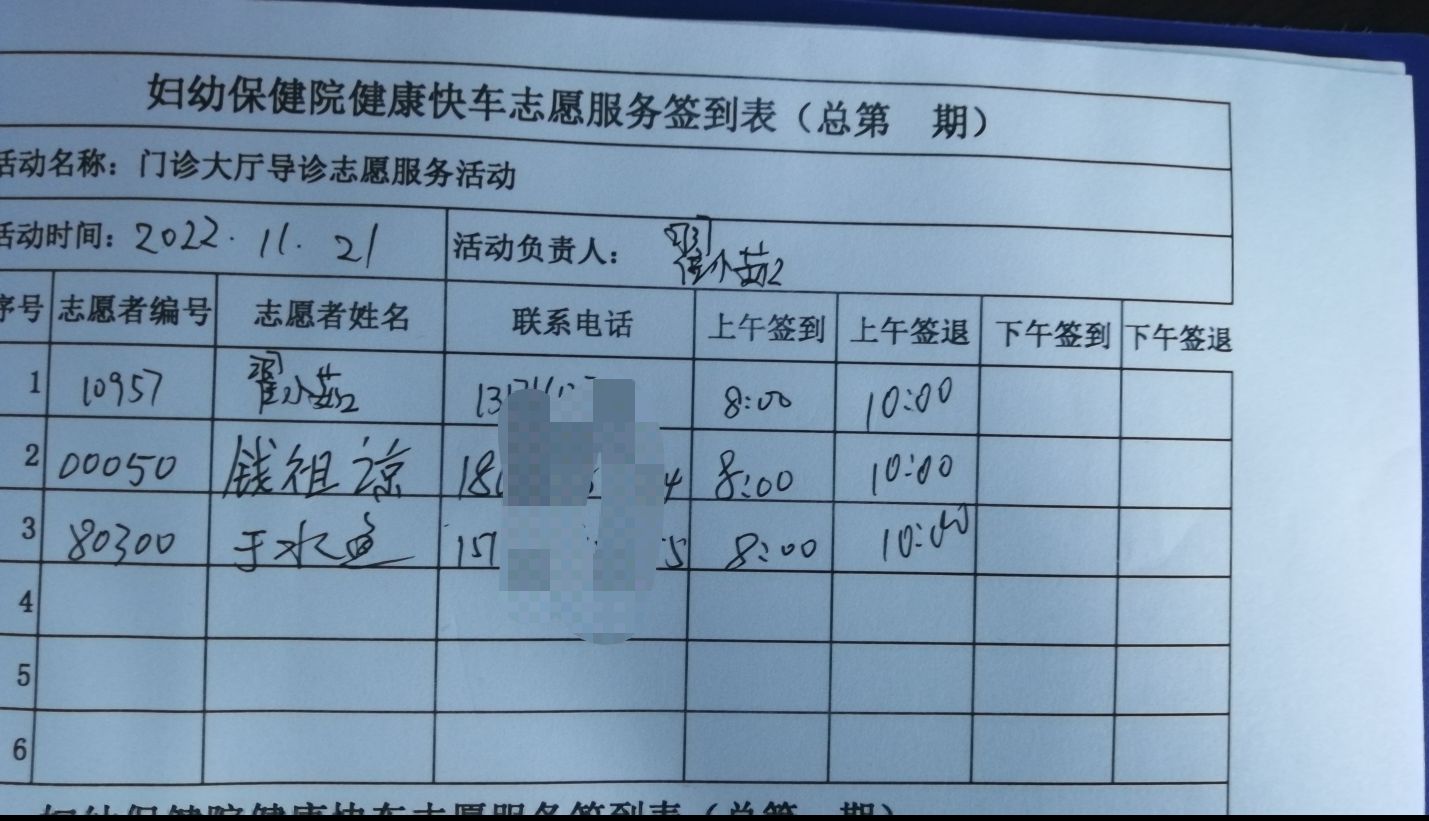 妇幼保健院健康快车志愿服务签到表（总第 期）
活动名称：门诊大厅导诊志愿服务活动
活动时间：2022.11.21 活动负责人：翟小茹
序号 志愿者编号 志愿者姓名 联系电话 上午签到 上午签退 下午签到 下午签退
1 10957 翟小茹 8:00 10:00
2 00050 钱祖凉 8:00 10:00
3 80300 于水 8:00 10:00
4
5
6
妇幼保健院健康快车志愿服务签到表（总第 期）